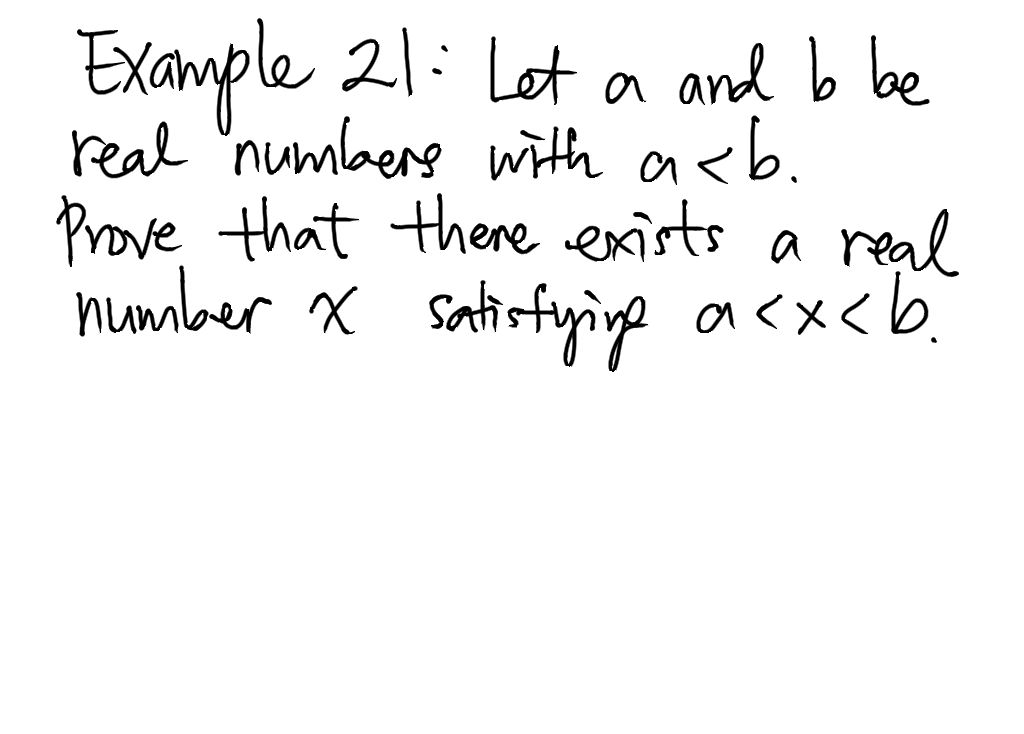 Example 21: Let a and b be
real numbers with a<b.
Prove that there exists a real
number x satisfying a<x<b.